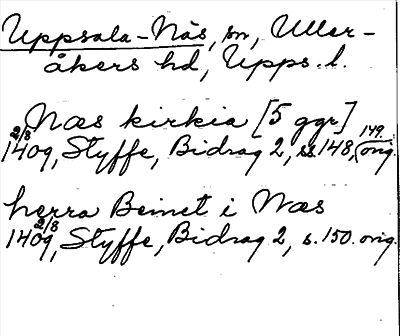 Uppsala-Näs, sn, Uller-
åkers hd, Upps. l.
Næs kirkia [5 ggr]
2/8 1409, Styffe, Bidrag 2, ss. 148, 149. orig.
herra Beinct i Næs
2/8 1409, Styffe, Bidrag 2, s. 150. orig.